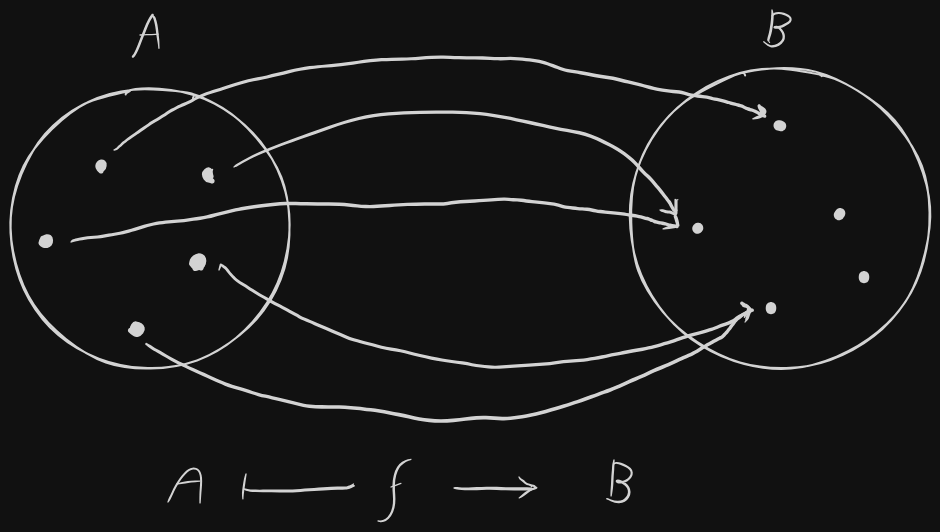 A B
A ⟼ f ⟶ B